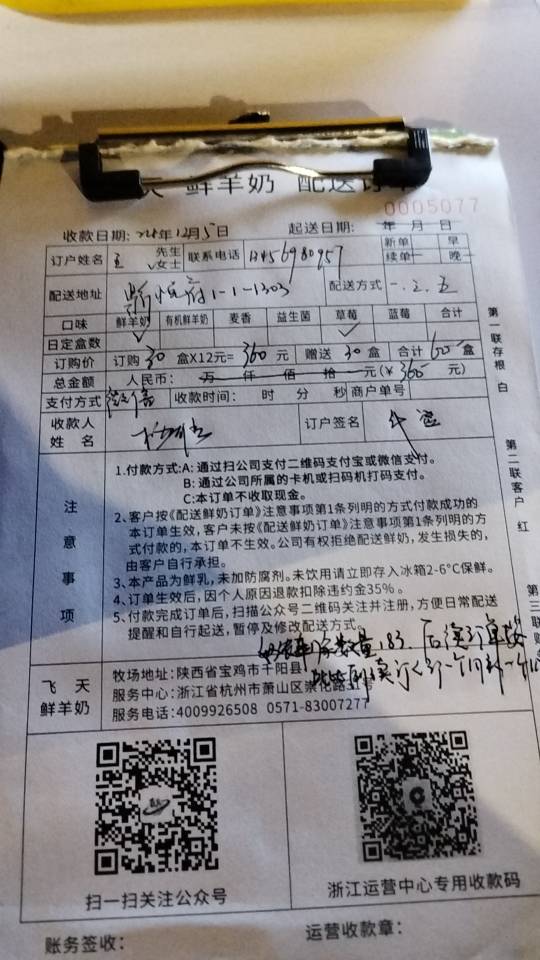 鲜羊奶 配送订单
0005077
收款日期: 年12月5日 起送日期: 年 月 日
订户姓名 王 先生 女士 联系电话 新单 早 续单 晚
配送地址 1-1-1303 配送方式 一.三.五
口味 鲜羊奶 有机鲜羊奶 麦香 益生菌 草莓 蓝莓 合计
日定盒数 ✓ ✓
订购价 订购30盒X12元=360元 赠送30盒 合计60盒
总金额 人民币: 万 仟 佰 拾 元(¥360元)
支付方式 微信 收款时间: 时 分 秒 商户单号
收款人姓名 订户签名
注意事项
1.付款方式:A: 通过扫公司支付二维码支付宝或微信支付。
B: 通过公司所属的卡机或扫码机打码支付。
C:本订单不收取现金。
2、客户按《配送鲜奶订单》注意事项第1条列明的方式付款成功的
本订单生效,客户未按《配送鲜奶订单》注意事项第1条列明的方
式付款的,本订单不生效。公司有权拒绝配送鲜奶,发生损失的,
由客户自行承担。
3、本产品为鲜乳,未加防腐剂。未饮用请立即存入冰箱2-6°C保鲜。
4、订单生效后,因个人原因退款扣除违约金35%。
5、付款完成订单后,扫描公众号二维码关注并注册,方便日常配送
提醒和自行起送,暂停及修改配送方式。
数量183.后续订单按
飞天鲜羊奶
牧场地址:陕西省宝鸡市千阳县
服务中心:浙江省杭州市萧山区崇化路31号
服务电话:4009926508 0571-83007277
扫一扫关注公众号
浙江运营中心专用收款码
账务签收:
运营收款章:
第一联存根 白
第二联客户 红
第三联